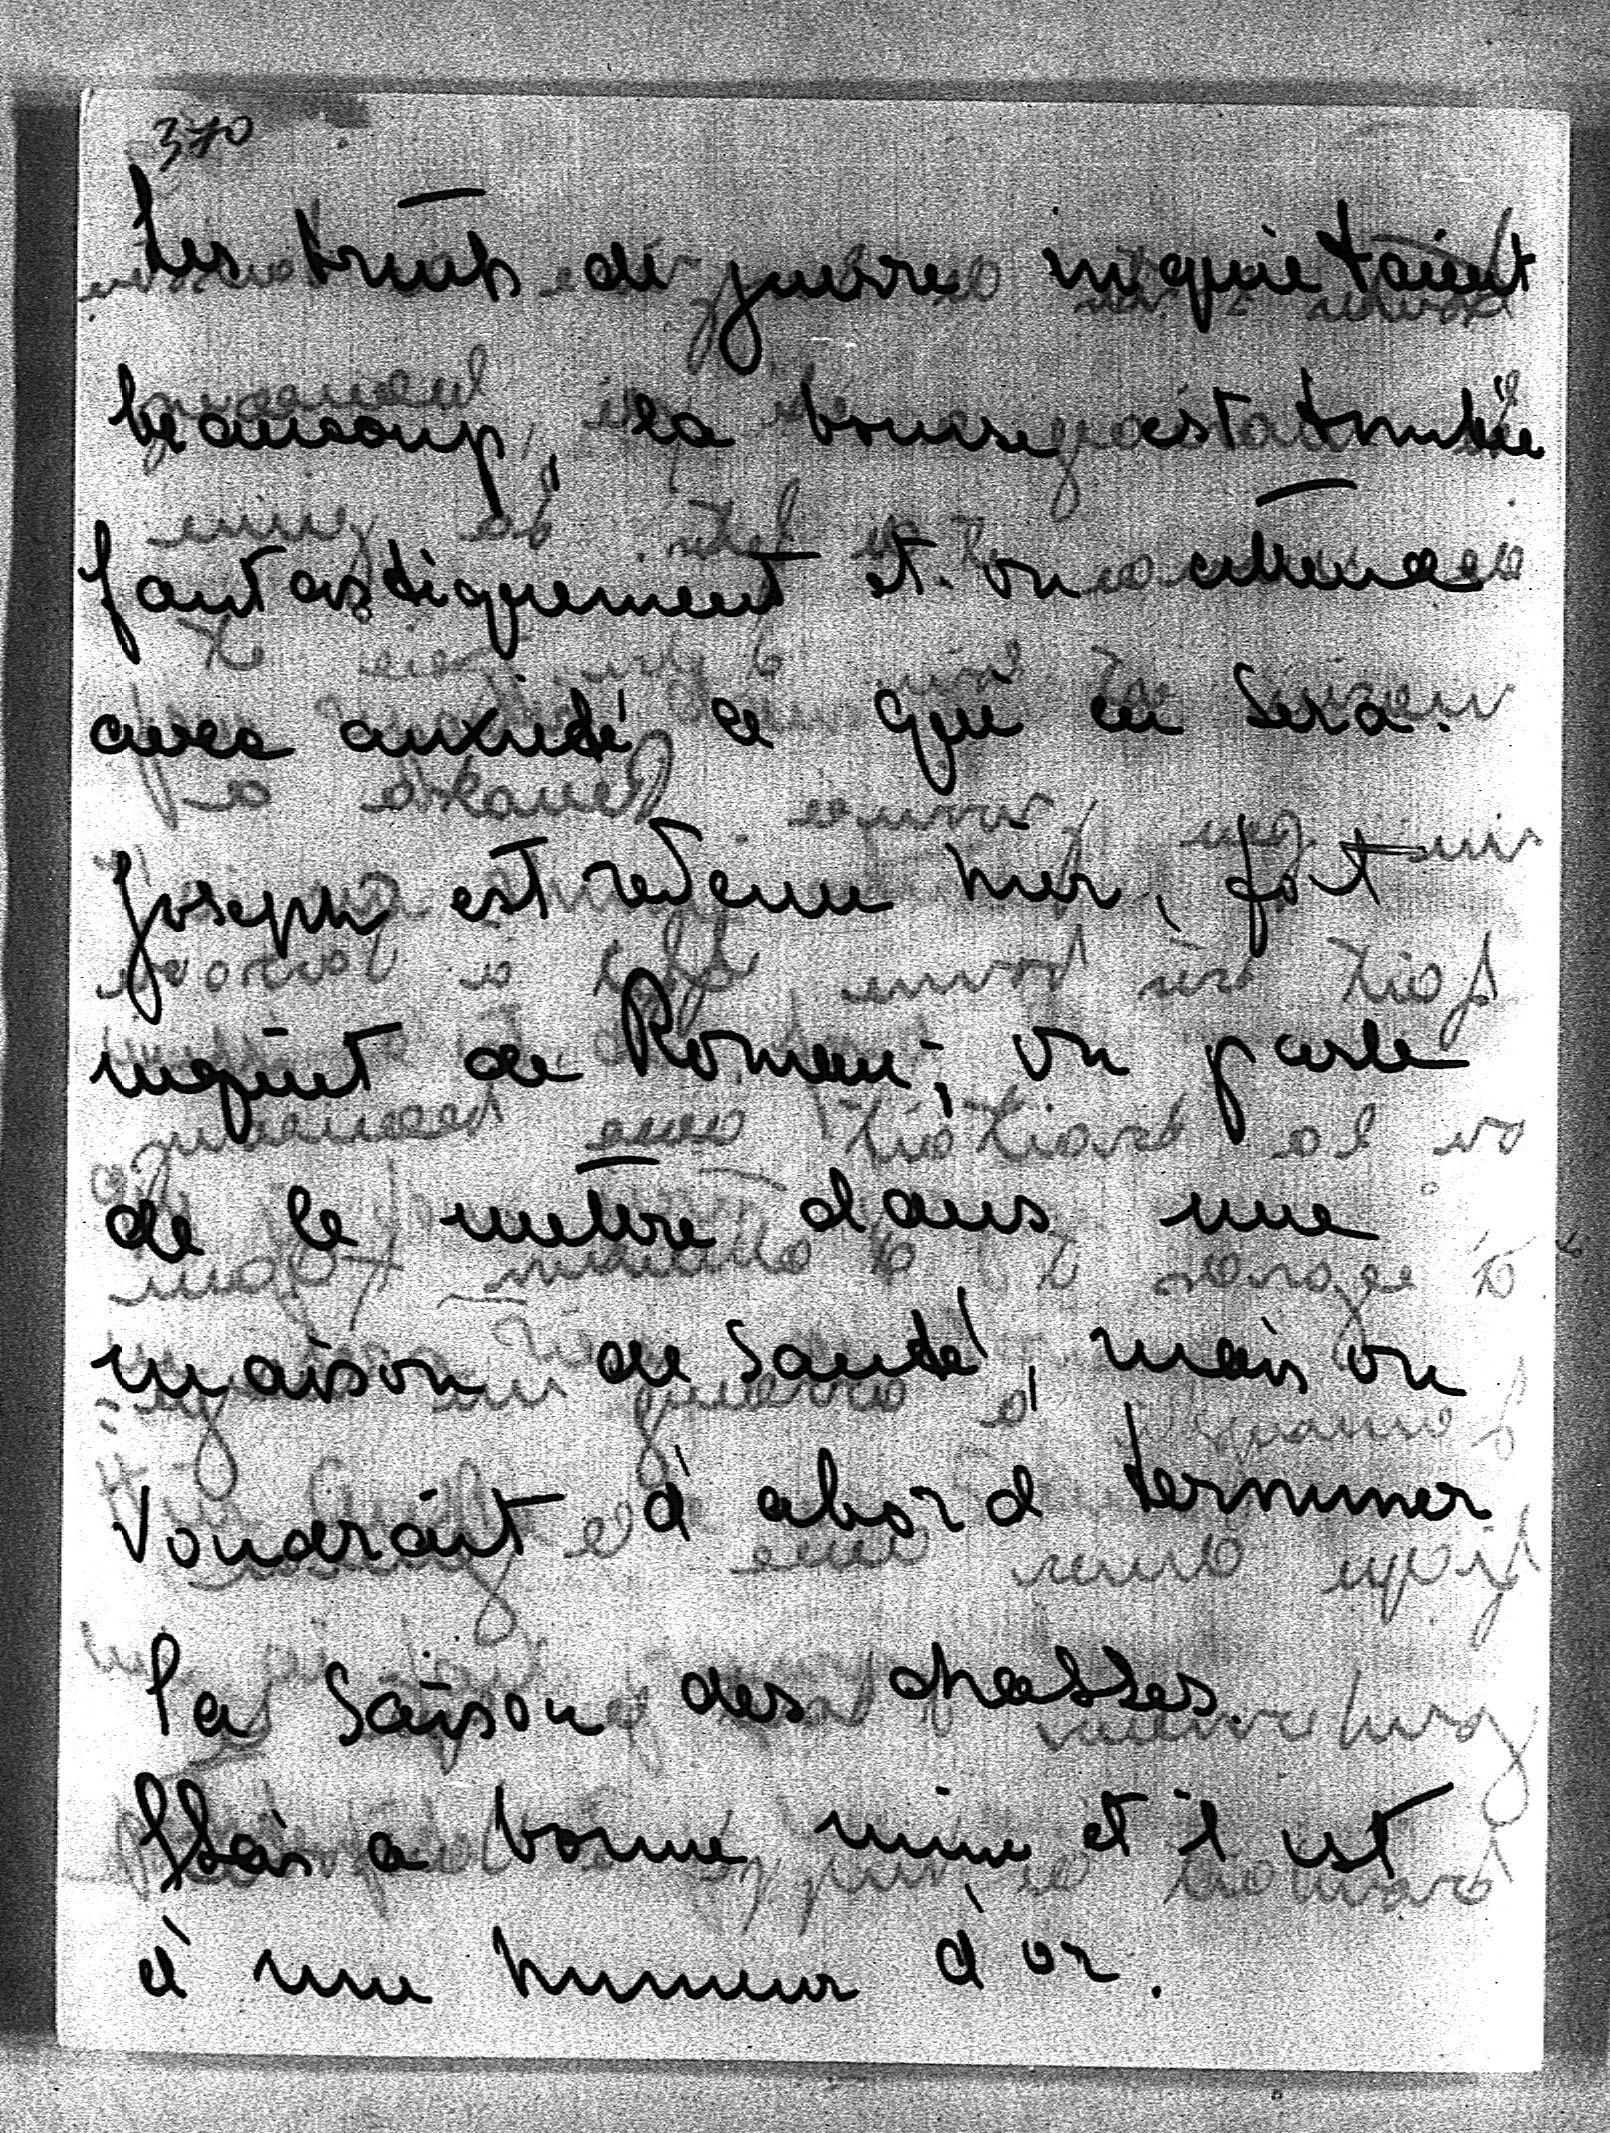 370
Les bruits de guerre inquiétaient
beaucoup, la bourse est tombée
fantastiquement et on attend
avec anxiété ce qui en sera.
Joseph est revenu hier, fort
inquiet de Roman; on parle
de le mettre dans une
maison de santé, mais on
voudrait d'abord terminer
la saison des chasses.
Staś a bonne mine et il est
d'une humeur d'or.